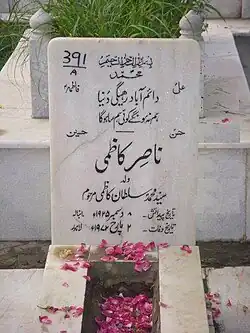 391
A
بسم اللہ الرحمن الرحیم
محمدؐ
علیؑ
فاطمہؑ
دائم آباد رہے گی دنیا
ہم نہ ہونگے کوئی ہم سا ہوگا
حسنؑ
حسینؑ
ناصر کاظمی
ولد
سید محمد سلطان کاظمی مرحوم
تاریخ پیدائش ۸ دسمبر ۱۹۲۵ء انبالہ
تاریخ وفات ۲ مارچ ۱۹۷۲ء لاہور